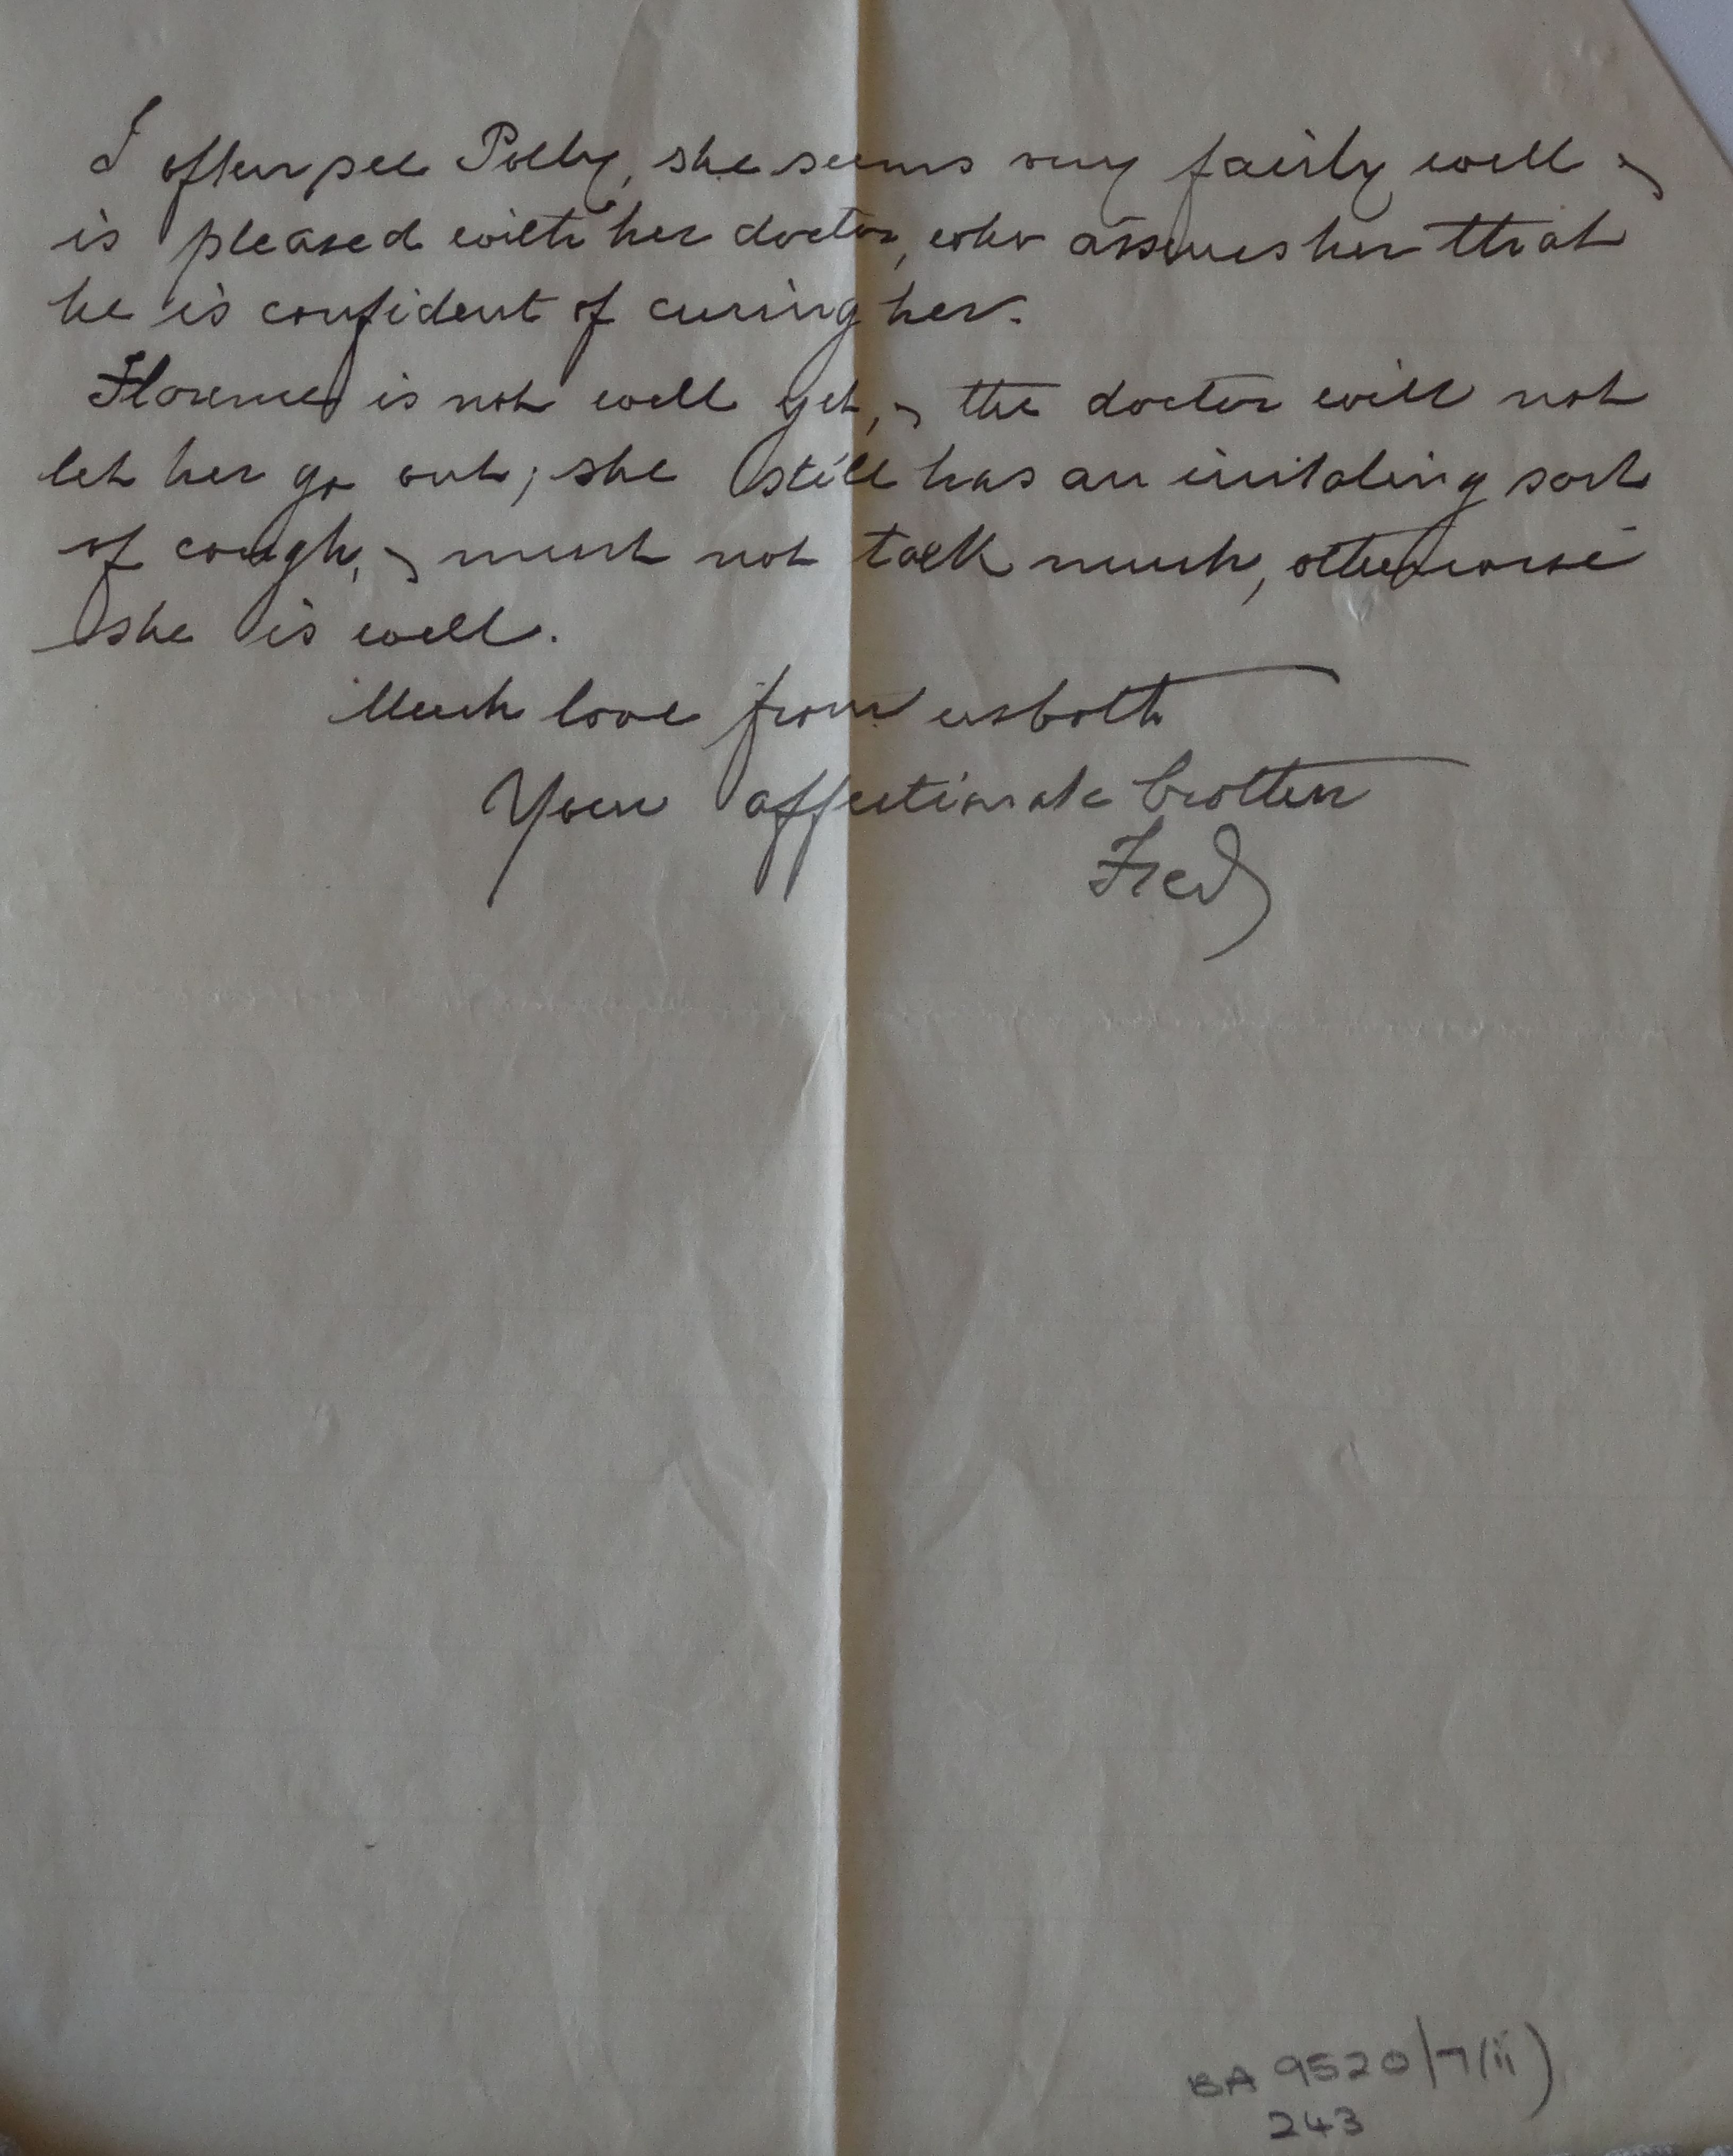 I often see Polly, she seems very fairly well &
is pleased with her doctor, who assures her that
he is confident of curing her.
Florence is not well yet, & the doctor will not
let her go out; she still has an irritating sort
of cough, & must not talk much, otherwise
she is well.
Much love from us both
Your affectionate brother
Fred
BA 9520/7(ii)
243